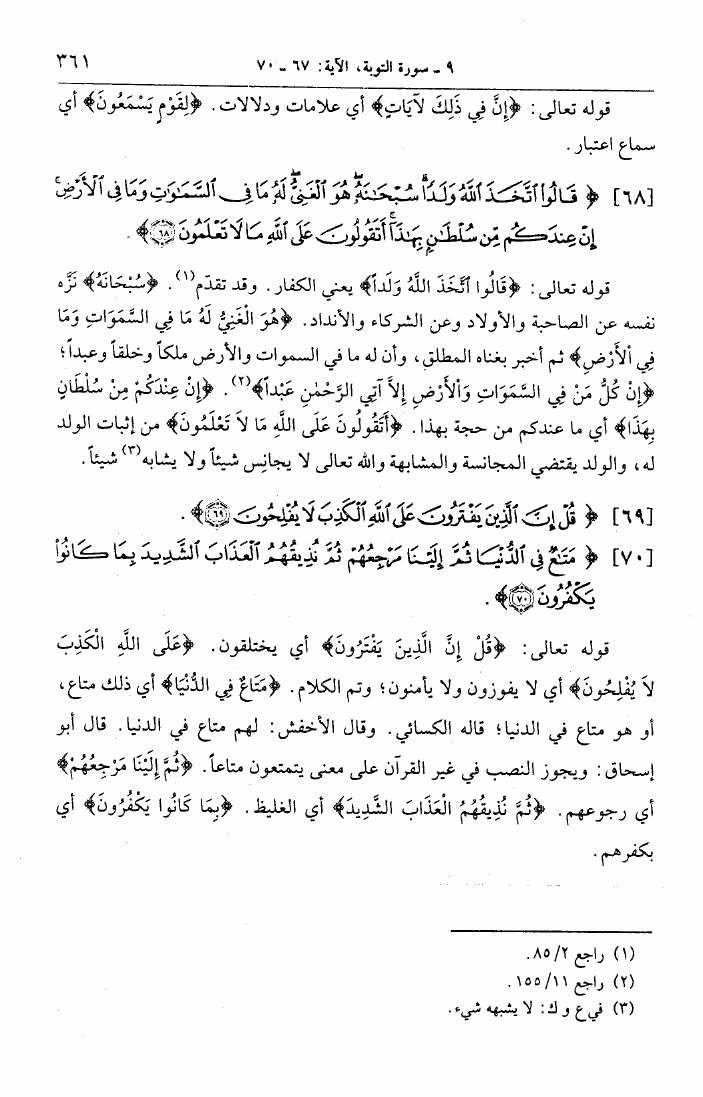 ٩ ـ سورة التوبة، الآية: ٦٧ ـ ٧٠
٣٦١
قوله تعالى: ﴿إِنَّ فِي ذَلِكَ لآيَاتٍ﴾ أي علامات ودلالات. ﴿لِقَوْمٍ يَسْمَعُونَ﴾ أي
سماع اعتبار.
[٦٨] ﴿ قَالُوا۟ ٱتَّخَذَ ٱللَّهُ وَلَدًاۗ سُبْحَٰنَهُۥۖ هُوَ ٱلْغَنِىُّۖ لَهُۥ مَا فِى ٱلسَّمَٰوَٰتِ وَمَا فِى ٱلْأَرْضِۚ
إِنْ عِندَكُم مِّن سُلْطَٰنٍۭ بِهَٰذَآۚ أَتَقُولُونَ عَلَى ٱللَّهِ مَا لَا تَعْلَمُونَ ٦٨﴾.
قوله تعالى: ﴿قَالُوا ٱتَّخَذَ اللَّهُ وَلَداً﴾ يعني الكفار. وقد تقدّم(١). ﴿سُبْحَانَهُ﴾ نزّه
نفسه عن الصاحبة والأولاد وعن الشركاء والأنداد. ﴿هُوَ الْغَنِيُّ لَهُ مَا فِي السَّمَوَاتِ وَمَا
فِي اْلأَرْضِ﴾ ثم أخبر بغناه المطلق، وأن له ما في السموات والأرض ملكاً وخلقاً وعبداً؛
﴿إِنْ كُلُّ مَنْ فِي السَّمَوَاتِ وَاْلأَرْضِ إِلاَّ آتِي الرَّحْمٰنِ عَبْداً﴾(٢). ﴿إِنْ عِنْدَكُمْ مِنْ سُلْطَانٍ
بِهَذَا﴾ أي ما عندكم من حجة بهذا. ﴿أَتَقُولُونَ عَلَى اللَّهِ مَا لاَ تَعْلَمُونَ﴾ من إثبات الولد
له، والولد يقتضي المجانسة والمشابهة والله تعالى لا يجانِس شيئاً ولا يشابه(٣) شيئاً.
[٦٩] ﴿ قُلْ إِنَّ ٱلَّذِينَ يَفْتَرُونَ عَلَى ٱللَّهِ ٱلْكَذِبَ لَا يُفْلِحُونَ ٦٩﴾.
[٧٠] ﴿ مَتَٰعٌ فِى ٱلدُّنْيَا ثُمَّ إِلَيْنَا مَرْجِعُهُمْ ثُمَّ نُذِيقُهُمُ ٱلْعَذَابَ ٱلشَّدِيدَ بِمَا كَانُوا۟
يَكْفُرُونَ ٧٠﴾.
قوله تعالى: ﴿قُلْ إِنَّ الَّذِينَ يَفْتَرُونَ﴾ أي يختلقون. ﴿عَلَى اللَّهِ الْكَذِبَ
لاَ يُفْلِحُونَ﴾ أي لا يفوزون ولا يأمنون؛ وتم الكلام. ﴿مَتَاعٌ فِي الدُّنْيَا﴾ أي ذلك متاع،
أو هو متاع في الدنيا؛ قاله الكسائي. وقال الأخفش: لهم متاع في الدنيا. قال أبو
إسحاق: ويجوز النصب في غير القرآن على معنى يتمتعون متاعاً. ﴿ثُمَّ إِلَيْنَا مَرْجِعُهُمْ﴾
أي رجوعهم. ﴿ثُمَّ نُذِيقُهُمُ الْعَذَابَ الشَّدِيدَ﴾ أي الغليظ. ﴿بِمَا كَانُوا يَكْفُرُونَ﴾ أي
بكفرهم.
(١) راجع ٨٥/٢.
(٢) راجع ١٥٥/١١.
(٣) في ع و ك: لا يشبهه شيء.